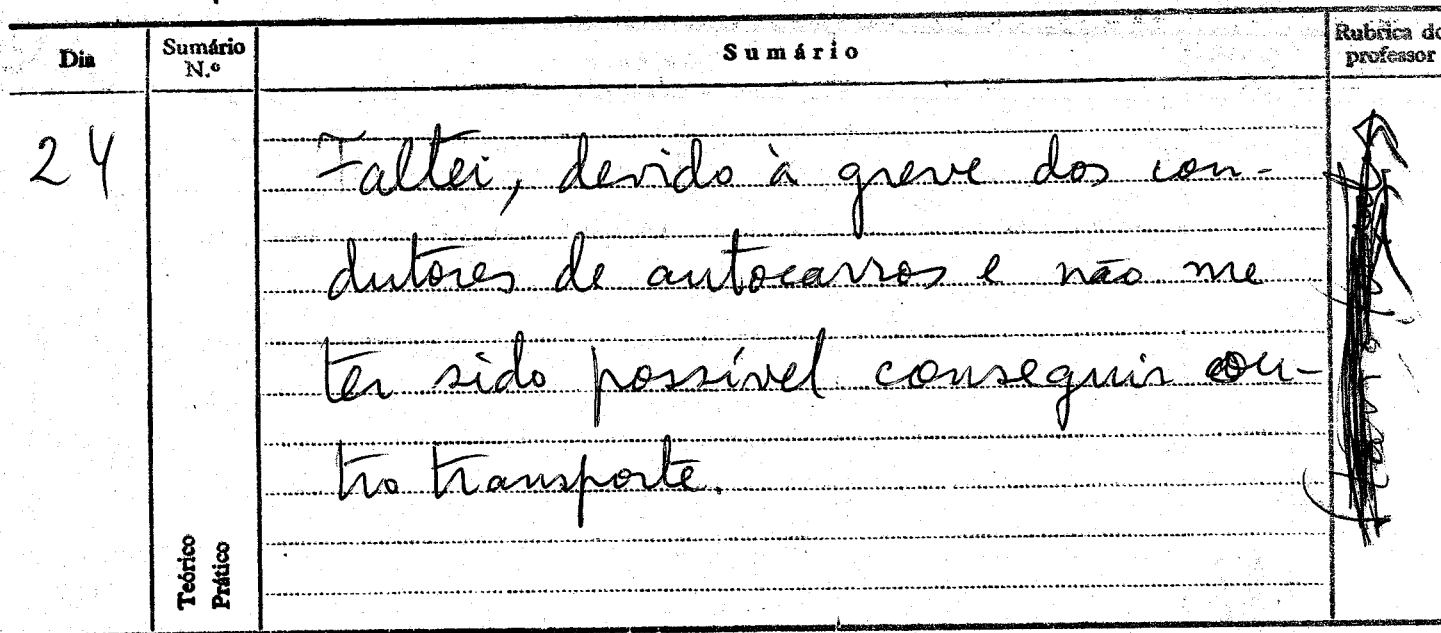 Dia
Sumário N.º
Sumário
Rubrica do professor
24
Faltei, devido à greve dos con-
dutores de autocarros e não me
ter sido possível conseguir ou-
tro transporte.
Teórico
Prático